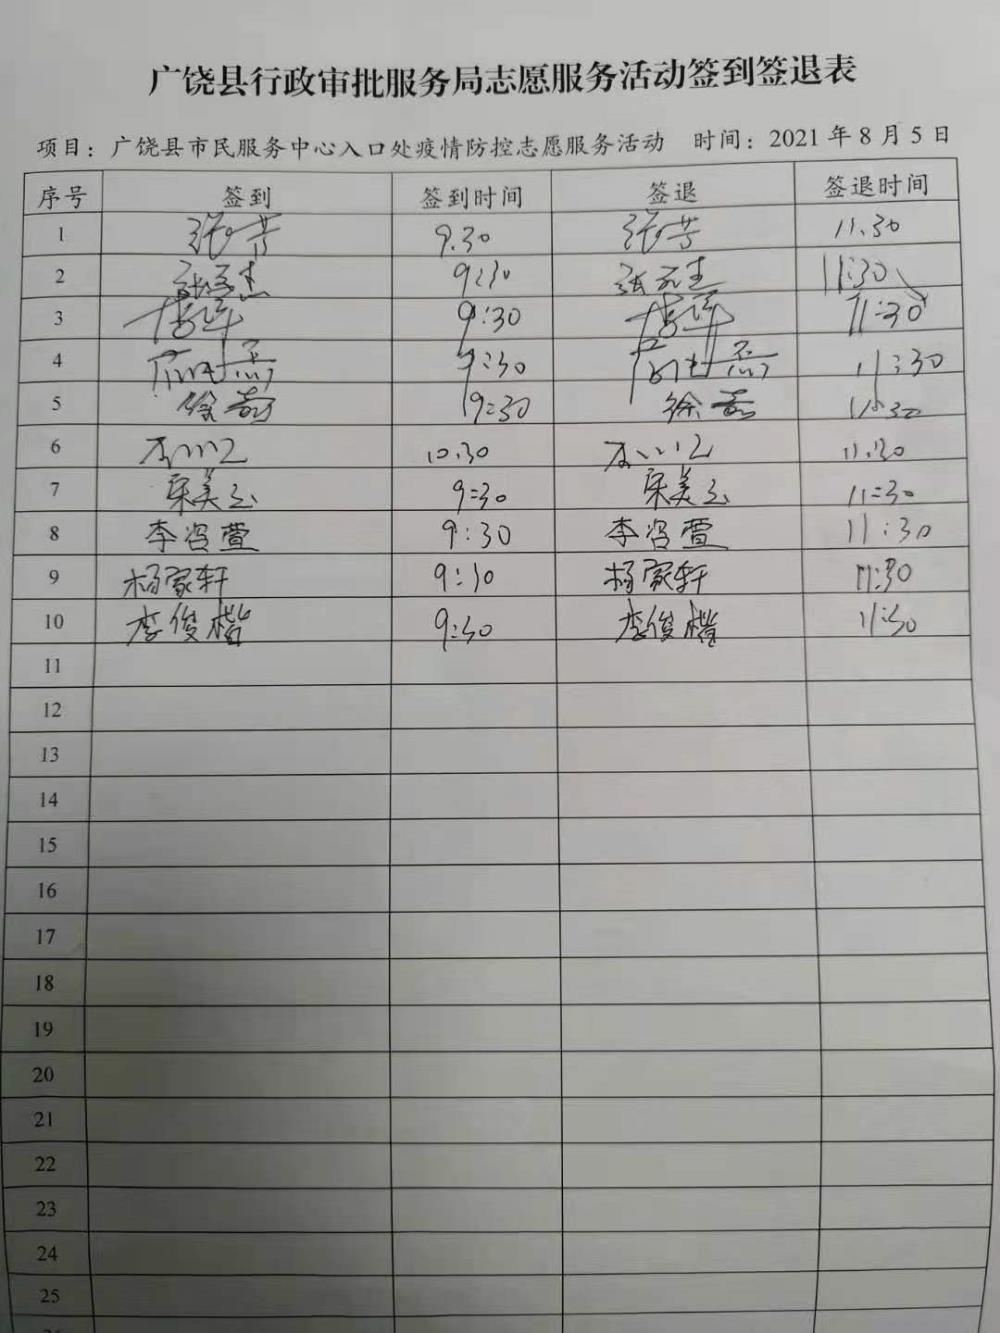 广饶县行政审批服务局志愿服务活动签到签退表
项目：广饶县市民服务中心入口处疫情防控志愿服务活动 时间：2021年8月5日
序号 签到 签到时间 签退 签退时间
1 张芳 9.30 张芳 11.30
2 9:30 11:30
3 9:30 11:30
4 9:30 11:30
5 9:30 11:30
6 10.30 11.30
7 宋美玉 9:30 宋美玉 11:30
8 9:30 11:30
9 杨家轩 9:30 杨家轩 11:30
10 李俊楷 9:30 李俊楷 11:30
11
12
13
14
15
16
17
18
19
20
21
22
23
24
25